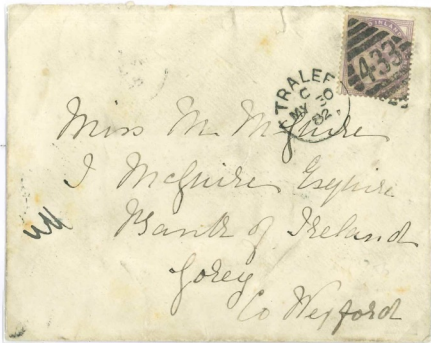 IRELAND
433
TRALEE
C
MY 30
82
Miss M. McGuire
J McGuire Esquire
Bank of Ireland
Gorey
Co Wexford